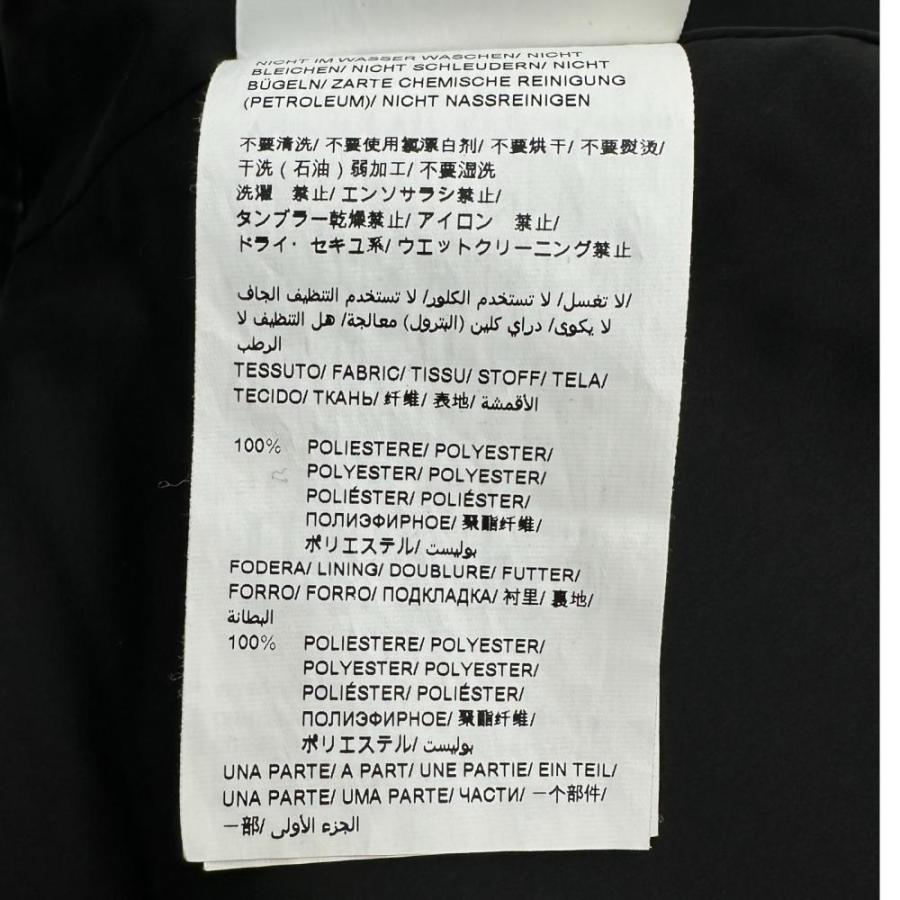 NICHT IM WASSER WASCHEN/ NICHT
BLEICHEN/ NICHT SCHLEUDERN/ NICHT
BÜGELN/ ZARTE CHEMISCHE REINIGUNG
(PETROLEUM)/ NICHT NASSREINIGEN
不要清洗/ 不要使用氯漂白剂/ 不要烘干/ 不要熨烫/
干洗（石油）弱加工/ 不要湿洗
洗濯　禁止/ エンソサラシ禁止/
タンブラー乾燥禁止/ アイロン　禁止/
ドライ・セキユ系/ ウエットクリーニング禁止
لا تغسل/ لا تستخدم الكلور/ لا تستخدم التنظيف الجاف/
لا يكوى/ دراي كلين (البترول) معالجة/ هل التنظيف لا
الرطب
TESSUTO/ FABRIC/ TISSU/ STOFF/ TELA/
TECIDO/ ТКАНЬ/ 纤维/ 表地/ الأقمشة
100% POLIESTERE/ POLYESTER/
POLYESTER/ POLYESTER/
POLIÉSTER/ POLIÉSTER/
ПОЛИЭФИРНОЕ/ 聚酯纤维/
ポリエステル/ بوليست
FODERA/ LINING/ DOUBLURE/ FUTTER/
FORRO/ FORRO/ ПОДКЛАДКА/ 衬里/ 裏地/
البطانة
100% POLIESTERE/ POLYESTER/
POLYESTER/ POLYESTER/
POLIÉSTER/ POLIÉSTER/
ПОЛИЭФИРНОЕ/ 聚酯纤维/
ポリエステル/ بوليست
UNA PARTE/ A PART/ UNE PARTIE/ EIN TEIL/
UNA PARTE/ UMA PARTE/ ЧАСТИ/ 一个部件/
一部/ الجزء الأولى